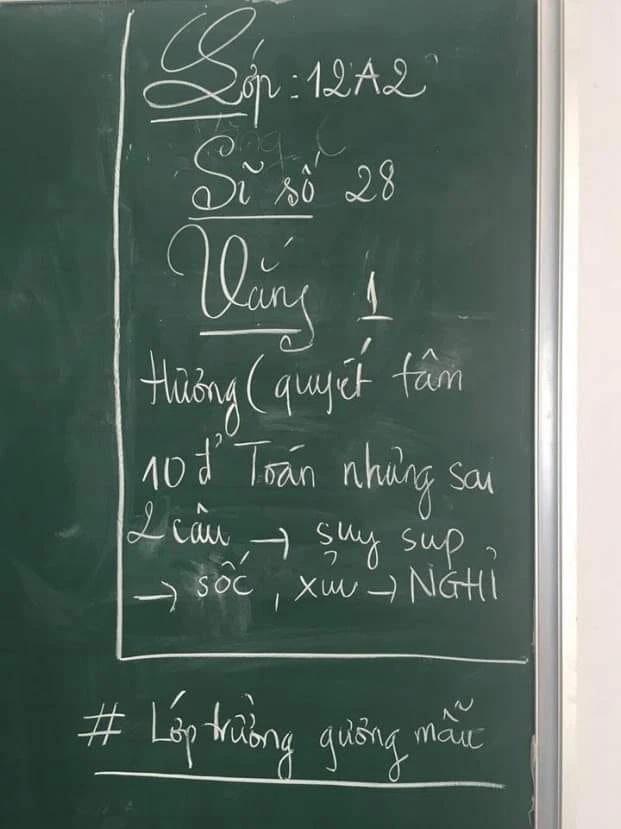 Lớp: 12A2
Sĩ số 28
Vắng 1
Hương (quyết tâm
10đ' Toán nhưng sai
2 câu → suy sụp
→ sốc, xỉu → NGHỈ
# Lớp trưởng gương mẫu